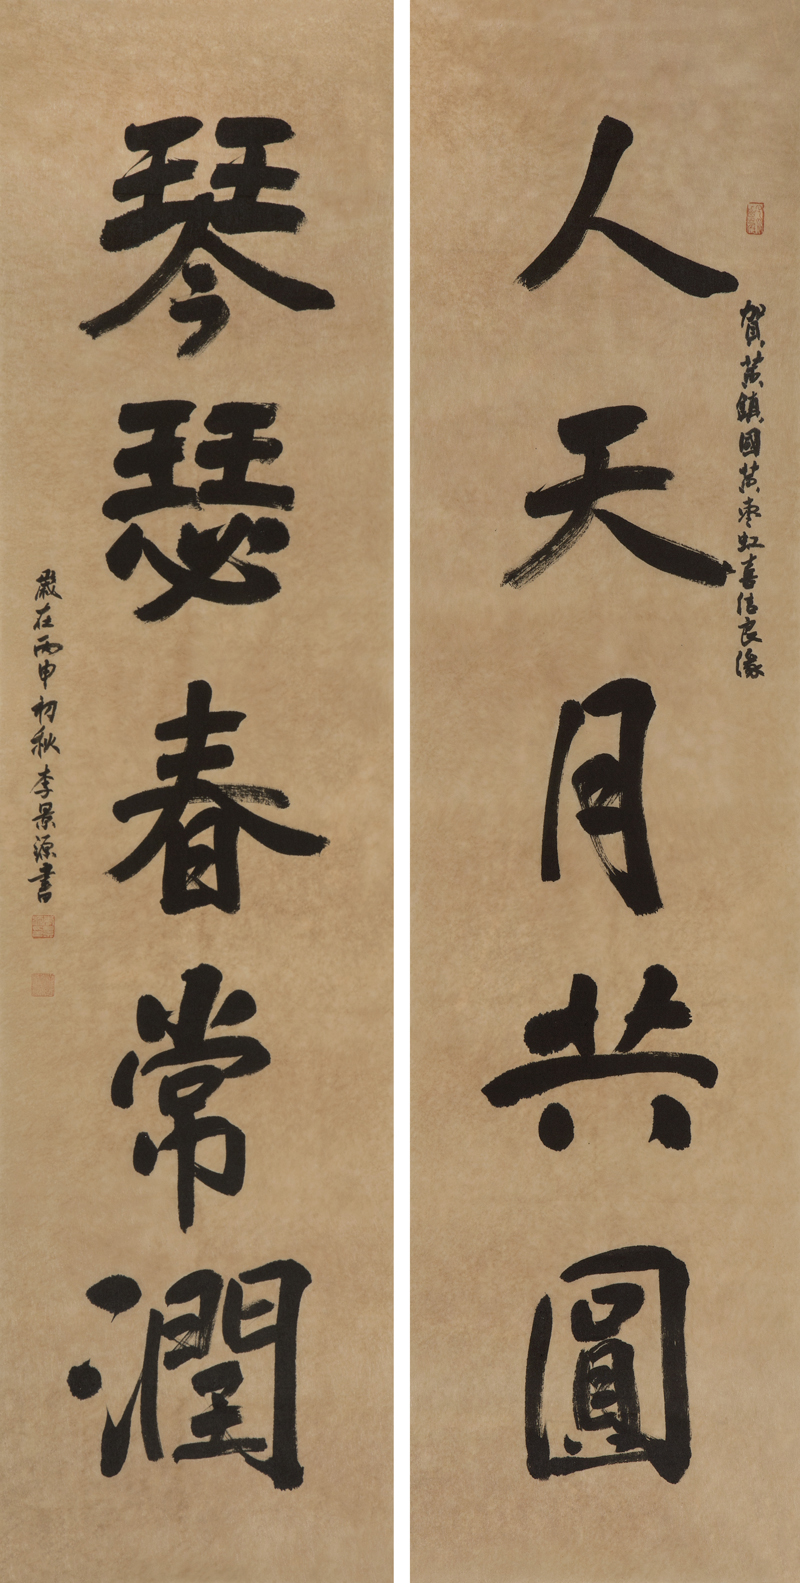 賀黃鎮國黃棗虹喜結良緣
人天月共圓
琴瑟春常潤
歲在丙申初秋李景源書